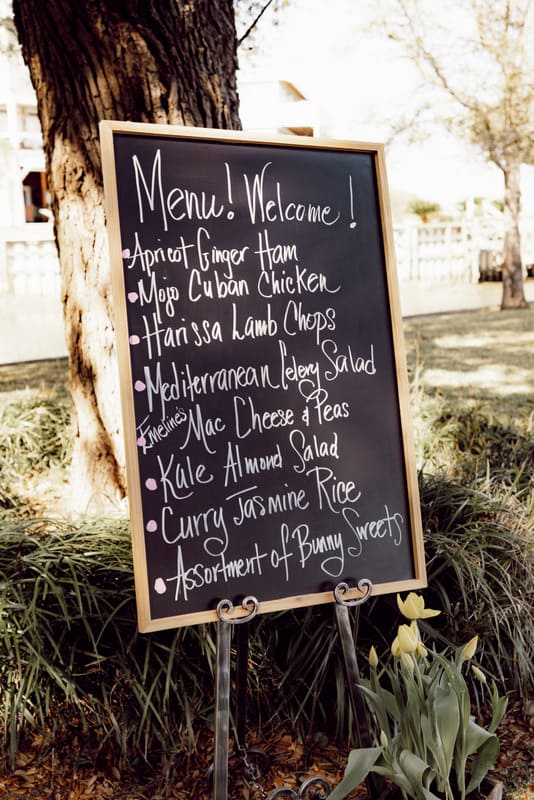 Menu! Welcome!
Apricot Ginger Ham
Mojo Cuban Chicken
Harissa Lamb Chops
Mediterranean Celery Salad
Emeline's Mac Cheese & Peas
Kale Almond Salad
Curry Jasmine Rice
Assortment of Bunny Sweets